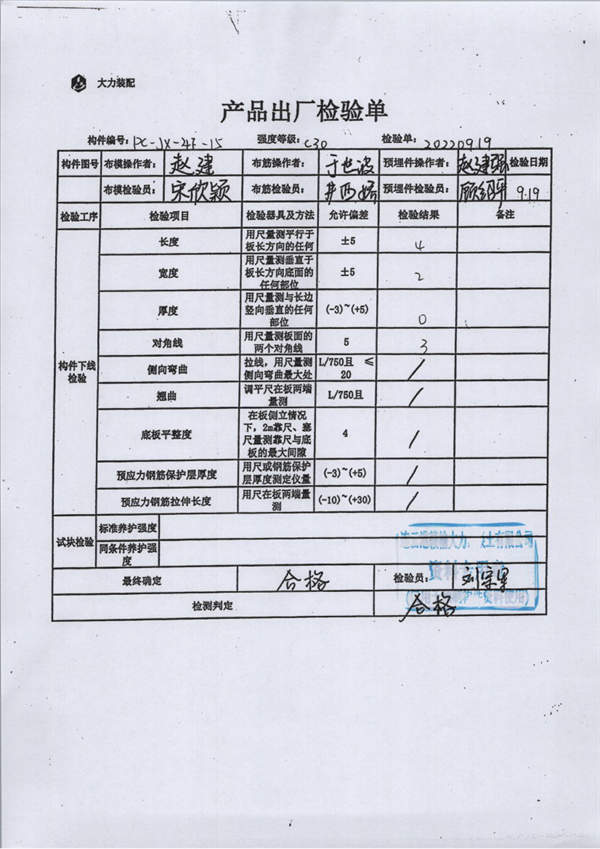 大力装配
产品出厂检验单
构件编号: PC-JX-4F-15 强度等级: C30 检验单: 20220919
构件图号 布模操作者: 赵建 布筋操作者: 于世波 预埋件操作者: 赵建强 检验日期
布模检验员: 宋欣颖 布筋检验员: 预埋件检验员: 9.19
检验工序 检验项目 检验器具及方法 允许偏差 检验结果 备注
构件下线检验
长度 用尺量测平行于板长方向的任何 ±5 4
宽度 用尺量测垂直于板长方向底面的任何部位 ±5 2
厚度 用尺量测与长边竖向垂直的任何部位 (-3)~(+5) 0
对角线 用尺量测板面的两个对角线 5 3
侧向弯曲 拉线，用尺量测侧向弯曲最大处 L/750且 ≤20 /
翘曲 调平尺在板两端量测 L/750且 /
底板平整度 在板侧立情况下，2m靠尺、塞尺量测靠尺与底板的最大间隙 4 /
预应力钢筋保护层厚度 用尺或钢筋保护层厚度测定仪量 (-3)~(+5) /
预应力钢筋拉伸长度 用尺在板两端量测 (-10)~(+30) /
试块检验 标准养护强度
同条件养护强度
最终确定 合格 检验员:
检测判定 合格